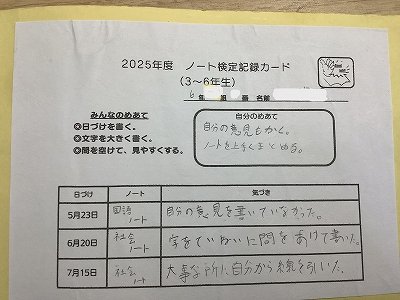 2025年度 ノート検定記録カード
(3～6年生)
6年 組 番 名前
みんなのめあて
◎日づけを書く。
◎文字を大きく書く。
◎間を空けて、見やすくする。
自分のめあて
自分の意見もかく。
ノートを上手くまとめる。
日づけ ノート 気づき
5月23日 国語ノート 自分の意見を書いていなかった。
6月20日 社会ノート 字をていねいに間をあけて書いた。
7月15日 社会ノート 大事な所に自分から線を引いた。